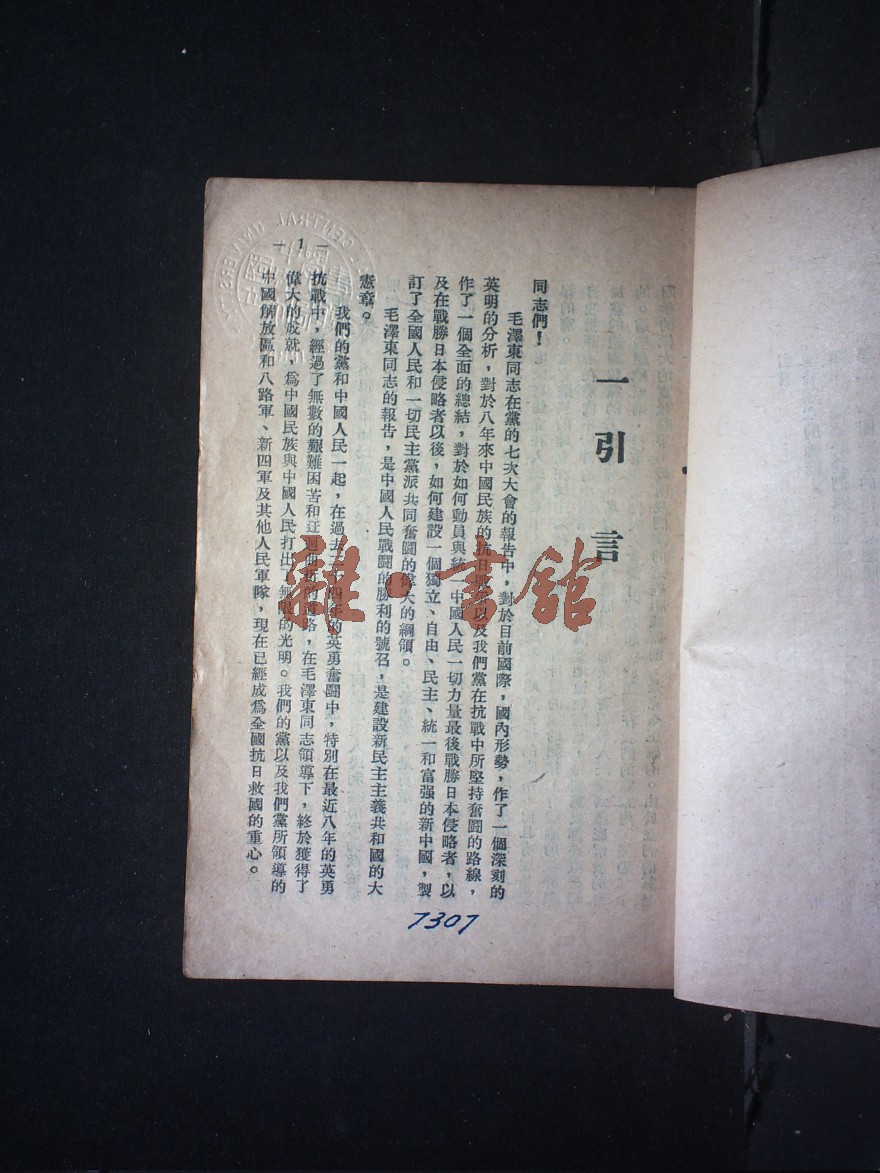 一 引 言
同志們！
毛澤東同志在黨的七次大會的報告中，對於目前國際，國內形勢，作了一個深刻的
英明的分析，對於八年來中國民族的抗日戰爭以及我們黨在抗戰中所堅持奮鬪的路線，
作了一個全面的總結，對於如何動員與統一中國人民一切力量最後戰勝日本侵略者，以
及在戰勝日本侵略者以後，如何建設一個獨立、自由、民主、統一和富强的新中國，製
訂了全國人民和一切民主黨派共同奮鬪的偉大的綱領。
毛澤東同志的報告，是中國人民戰鬪的勝利的號召，是建設新民主主義共和國的大
憲章。
我們的黨和中國人民一起，在過去二十四年的英勇奮鬪中，特別在最近八年的英勇
抗戰中，經過了無數的艱難困苦和迂迴曲折的道路，在毛澤東同志領導下，終於獲得了
偉大的成就，爲中國民族與中國人民打出了無限的光明。我們的黨以及我們黨所領導的
中國解放區和八路軍、新四軍及其他人民軍隊，現在已經成爲全國抗日救國的重心。
— 1 —
7307
雜·書館
CENTRAL UNIVERS